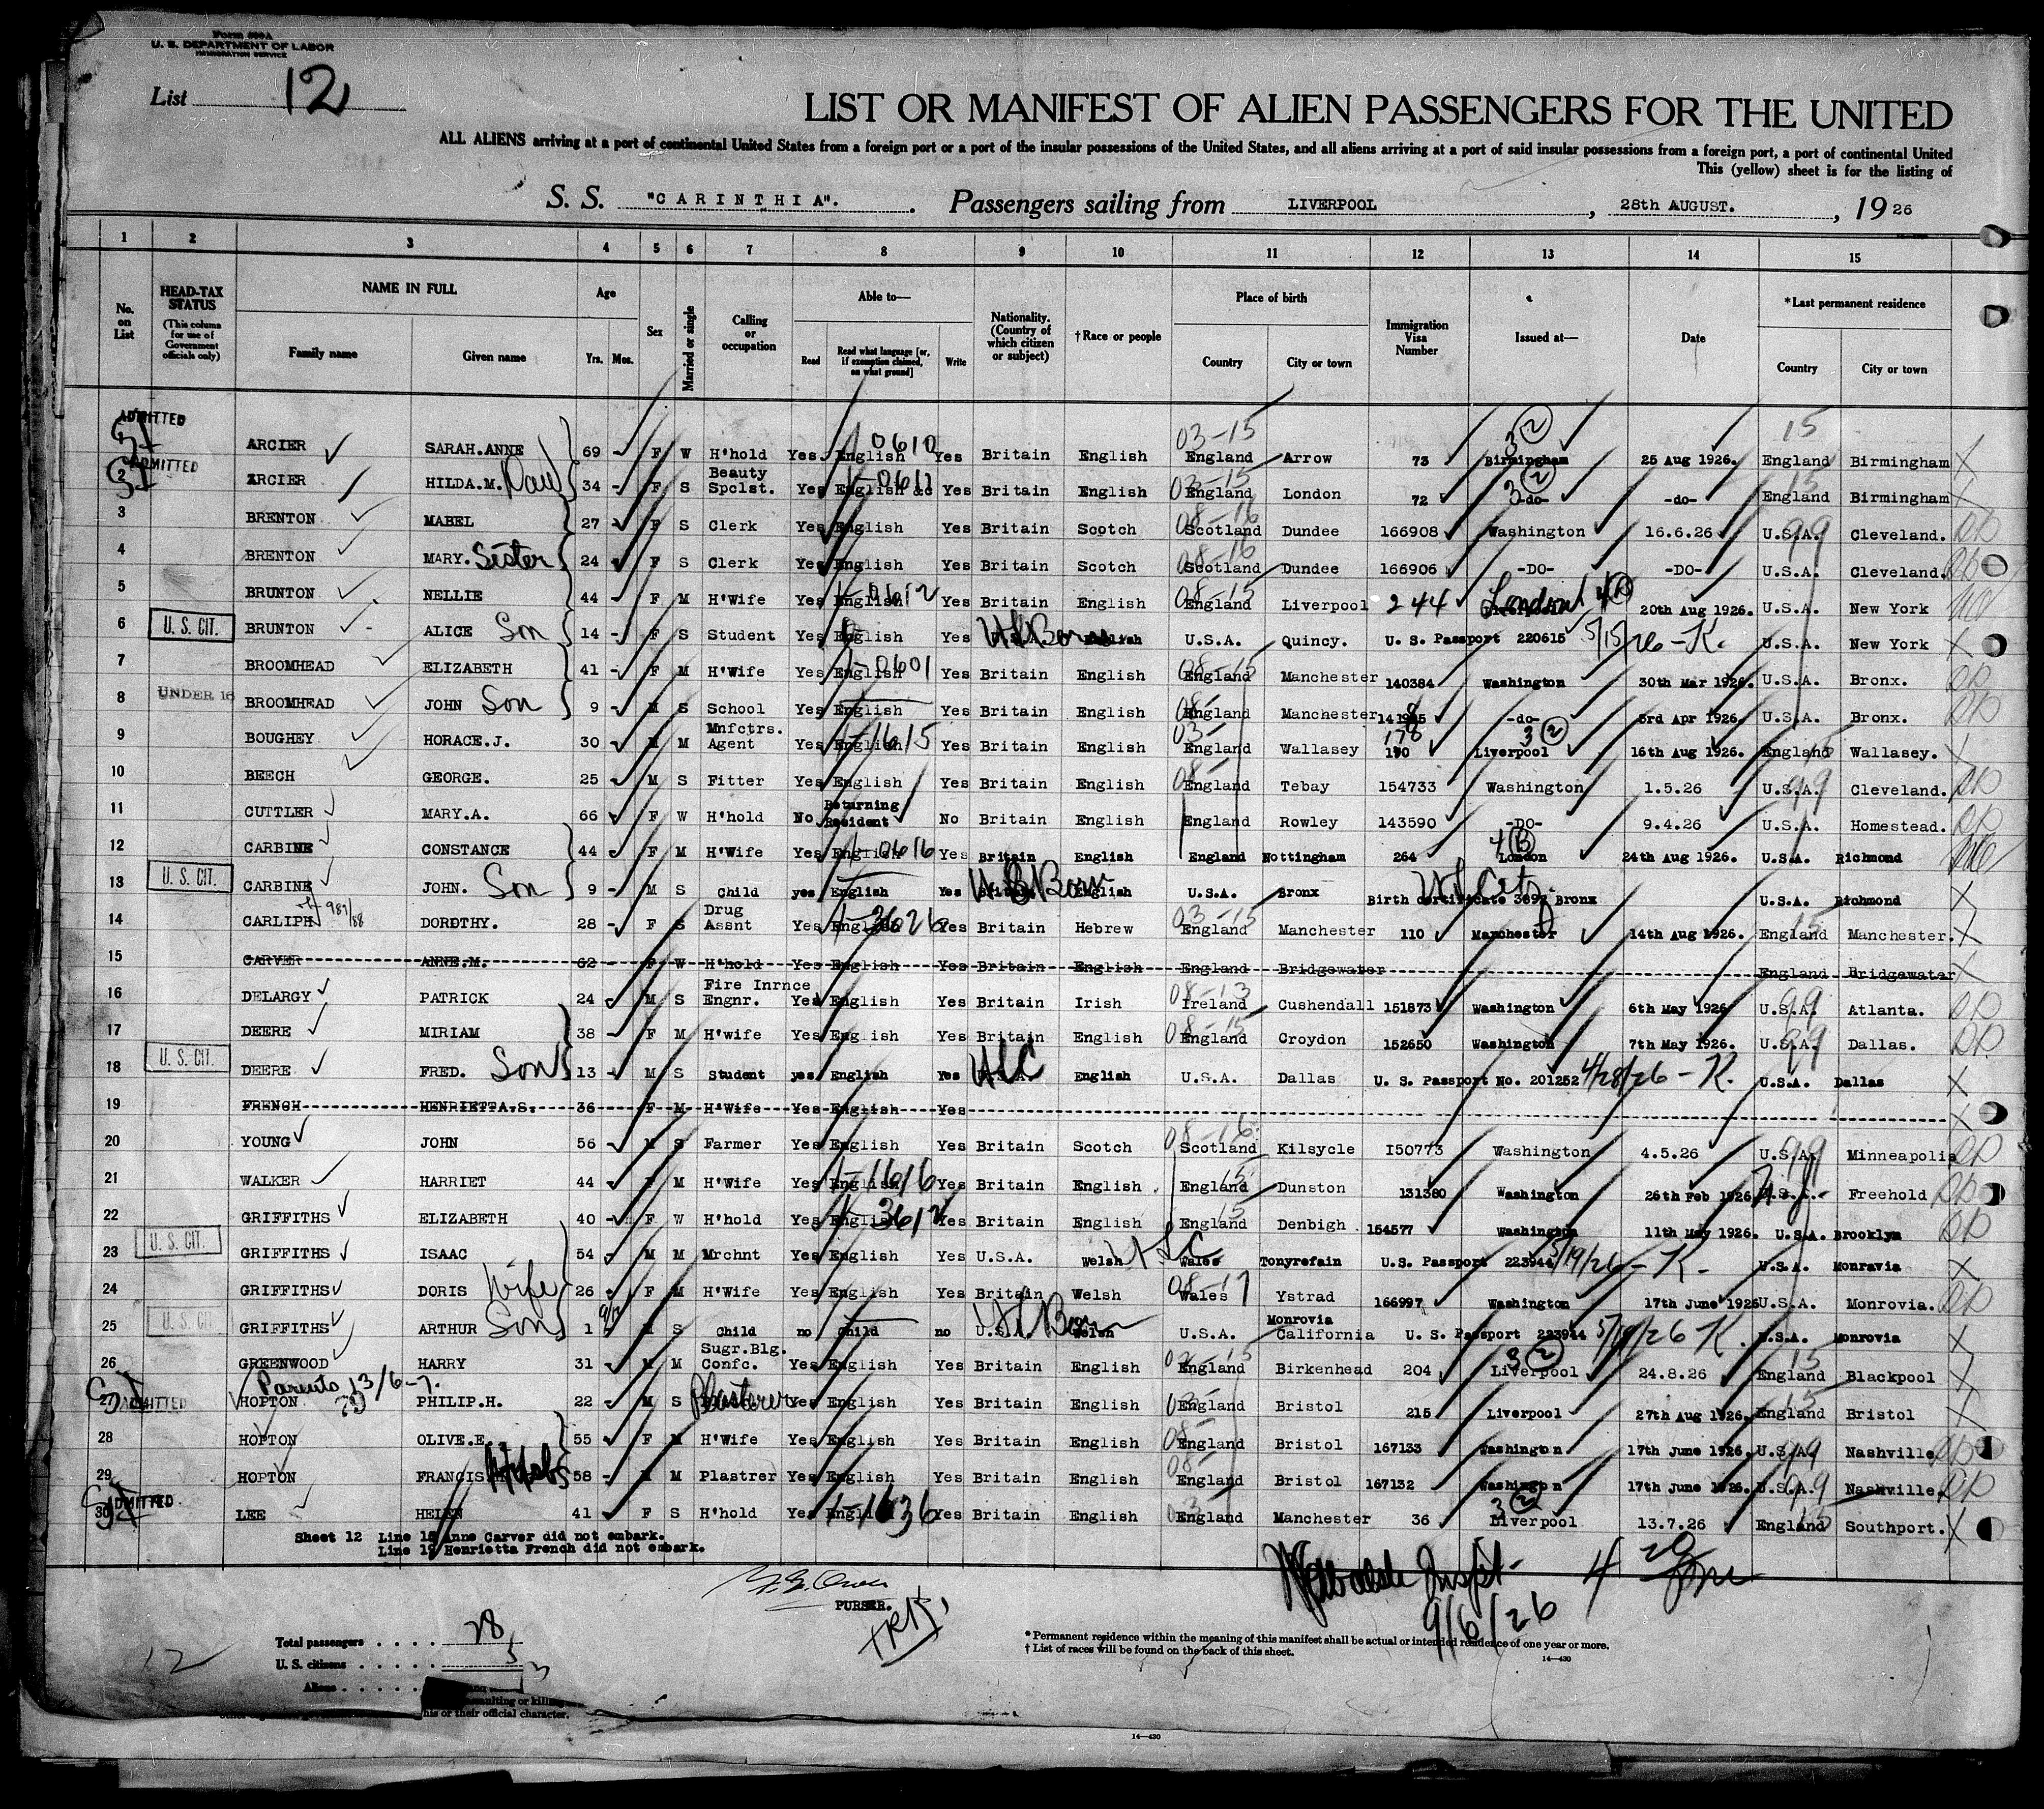 Form 500A
U. S. DEPARTMENT OF LABOR
IMMIGRATION SERVICE
List 12
LIST OR MANIFEST OF ALIEN PASSENGERS FOR THE UNITED
ALL ALIENS arriving at a port of continental United States from a foreign port or a port of the insular possessions of the United States, and all aliens arriving at a port of said insular possessions from a foreign port, a port of continental United
This (yellow) sheet is for the listing of
S. S. "CARINTHIA". Passengers sailing from LIVERPOOL, 28th AUGUST., 1926
1 2 3 4 5 6 7 8 9 10 11 12 13 14 15
No. on List HEAD-TAX STATUS (This column for use of Government officials only) NAME IN FULL Family name Given name Age Yrs. Mos. Sex Married or single Calling or occupation Able to— Read Read what language [or, if exemption claimed, on what ground] Write Nationality. (Country of which citizen or subject) †Race or people Place of birth Country City or town Immigration Visa Number Issued at— Date *Last permanent residence Country City or town
ADMITTED ARCIER SARAH.ANNE 69 F W H'hold Yes English 0610 Yes Britain English 03-15 England Arrow 73 3 (2) Birmingham 25 Aug 1926. 15 England Birmingham X
2 ADMITTED ARCIER HILDA.M. Dau 34 F S Beauty Spclst. Yes English Yes Britain English 03-15 England London 72 3 (2) -do- -do- 15 England Birmingham X
3 BRENTON MABEL 27 F S Clerk Yes English Yes Britain Scotch 08-16 Scotland Dundee 166908 Washington 16.6.26 U.S.A. 99 Cleveland.
4 BRENTON MARY. Sister 24 F S Clerk Yes English Yes Britain Scotch 08-16 Scotland Dundee 166906 -DO- -DO- U.S.A. Cleveland.
5 BRUNTON NELLIE 44 F M H'Wife Yes English 0612 Yes Britain English 08-15 England Liverpool 244 London 20th Aug 1926. U.S.A. New York
6 U. S. CIT. BRUNTON ALICE Son 14 F S Student Yes Yes US Born English U.S.A. Quincy. U. S. Passport 220615 5/15/26-K. U.S.A. New York X
7 BROOMHEAD ELIZABETH 41 F M H'Wife Yes English 1-0601 Yes Britain English 08-15 England Manchester 140384 Washington 30th Mar 1926. U.S.A. Bronx.
8 UNDER 16 BROOMHEAD JOHN Son 9 M S School Yes English Yes Britain English 08- England Manchester -do- 3rd Apr 1926. U.S.A. Bronx.
9 BOUGHEY HORACE.J. 30 M M Mnfctrs. Agent Yes English 1-1615 Yes Britain English 03- England Wallasey 178 Liverpool 3 (2) 16th Aug 1926. England Wallasey.
10 BEECH GEORGE. 25 M S Fitter Yes English Yes Britain English 08- England Tebay 154733 Washington 1.5.26 U.S.A. 99 Cleveland.
11 CUTTLER MARY.A. 66 F W H'hold No Returning Resident No Britain English England Rowley 143590 -DO- 9.4.26 U.S.A. Homestead.
12 CARBINE CONSTANCE 44 F M H'Wife Yes English 1-0616 Yes Britain English England Nottingham 264 4(B) London 24th Aug 1926. U.S.A. Richmond
13 U. S. CIT. CARBINE JOHN. Son 9 M S Child yes English Yes US Born English U.S.A. Bronx US Cit. Birth certificate 3697 Bronx U.S.A. Richmond X
14 CARLIPH DOROTHY. 28 F S Drug Assnt Yes English 1-3626 Yes Britain Hebrew 03-15 England Manchester 110 Manchester 14th Aug 1926. 15 England Manchester. X
15 CARVER ANNE.M. 62 F W H'hold Yes English Yes Britain English England Bridgewater England Bridgewater X
16 DELARGY PATRICK 24 M S Fire Inrnce Engnr. Yes English Yes Britain Irish 08-13 Ireland Cushendall 151873 Washington 6th May 1926 U.S.A. 99 Atlanta.
17 DEERE MIRIAM 38 F M H'wife Yes English Yes Britain English 08-15 England Croydon 152650 Washington 7th May 1926. U.S.A. 99 Dallas.
18 U. S. CIT. DEERE FRED. Son 13 M S Student yes English Yes USC English U.S.A. Dallas U. S. Passport No. 201252 4/28/26-K. U.S.A. Dallas X
19 FRENCH HENRIETTA.S. 36 F M H'Wife Yes English Yes X
20 YOUNG JOHN 56 M S Farmer Yes English Yes Britain Scotch 08-16 Scotland Kilsycle I50773 Washington 4.5.26 U.S.A. 99 Minneapolis
21 WALKER HARRIET 44 F M H'Wife Yes English 1-1616 Yes Britain English 15 England Dunston 131380 Washington 26th Feb 1926 U.S.A. Freehold
22 GRIFFITHS ELIZABETH 40 F W H'hold Yes English Yes Britain English 15 England Denbigh 154577 Washington 11th May 1926. U.S.A. Brooklyn
23 U. S. CIT. GRIFFITHS ISAAC 54 M M Mrchnt Yes English Yes U.S.A. Welsh USC Wales Tonyrefain U.S. Passport 223944 5/19/26-K. U.S.A. Monravia X
24 GRIFFITHS DORIS Wife 26 F M H'Wife Yes English Yes Britain Welsh 08-17 Wales Ystrad 166997 Washington 17th June 1926 U.S.A. Monrovia.
25 U. S. CIT. GRIFFITHS ARTHUR Son 1 M S Child no Child no US Born Welsh U.S.A. Monrovia California U. S. Passport 223944 5/19/26 K. U.S.A. Monrovia X
26 GREENWOOD HARRY 31 M M Sugr.Blg. Confc. Yes English Yes Britain English England Birkenhead 204 3 (2) Liverpool 24.8.26 15 England Blackpool
Parents 13/6-7.
27 ADMITTED HOPTON PHILIP.H. 22 M S Plasterer Yes English Yes Britain English 03- England Bristol 215 Liverpool 27th Aug 1926. 15 England Bristol
28 HOPTON OLIVE.E. 55 F M H'Wife Yes English Yes Britain English 08- England Bristol 167133 Washington 17th June 1926. U.S.A. 99 Nashville
29 HOPTON FRANCIS. Husb 58 M M Plastrer Yes English Yes Britain English 08- England Bristol 167132 Washington 17th June 1926. U.S.A. 99 Nashville.
30 ADMITTED LEE HELEN 41 F S H'hold Yes English 1-1636 Yes Britain English 03- England Manchester 36 3 (2) Liverpool 13.7.26 15 England Southport. X
Sheet 12 Line 15 Anne Carver did not embark.
Line 19 Henrietta French did not embark.
PURSER.
9/6/26
Total passengers . . . . 28
U. S. citizens . . . . . 5
Aliens
* Permanent residence within the meaning of this manifest shall be actual or intended residence of one year or more.
† List of races will be found on the back of this sheet.
14—430
12
his or their official character.
14—430